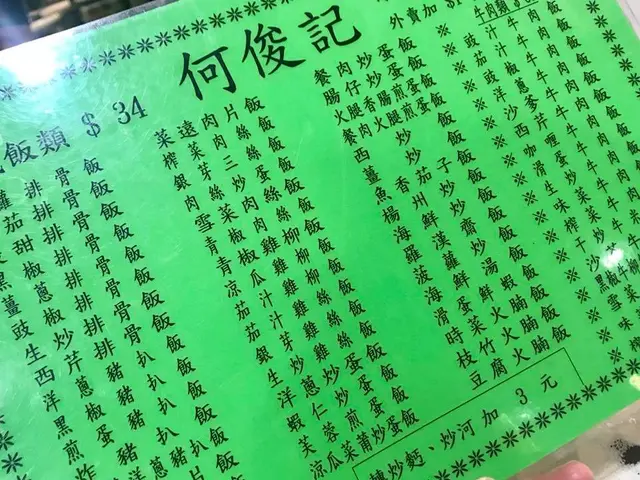 何俊記
外賣加 $1
飯類 $ 34
排骨飯
茄排骨飯
甜排骨飯
黑椒排骨飯
薑蔥排骨飯
豉椒排骨飯
生炒排骨飯
西芹豬扒飯
洋蔥豬扒飯
黑椒豬扒飯
煎蛋豬扒飯
菜遠肉片飯
榨菜肉絲飯
銀芽三絲飯
肉絲炒蛋飯
雪菜肉絲飯
青椒肉絲飯
青椒雞柳飯
涼瓜雞柳飯
茄汁雞柳飯
茄汁雞絲飯
銀芽雞絲飯
洋蔥炒蛋飯
蝦仁炒蛋飯
芙蓉煎蛋飯
涼瓜菜莆炒蛋飯
餐肉炒蛋飯
腸仔炒蛋飯
火腿香腸煎蛋飯
餐肉火腿煎蛋飯
西炒飯
薑炒飯
魚香茄子飯
楊州炒飯
海鮮炒飯
羅漢齋飯
菠蘿炒飯
海鮮湯飯
滑蛋鮮蝦飯
時菜火腩飯
枝竹火腩飯
豆腐火腩飯
炒麵、炒河加 3 元
牛肉類
※ 豉汁牛肉飯
※ 茄汁牛肉飯
※ 豉椒牛肉飯
※ 洋蔥牛肉飯
※ 沙爹牛肉飯
※ 西芹牛肉飯
※ 咖喱牛肉飯
※ 滑蛋牛肉飯
※ 生炒牛肉
※ 味菜牛肉
※ 榨菜牛肉
※ 干炒牛